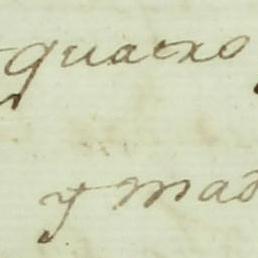 quatro
y mad